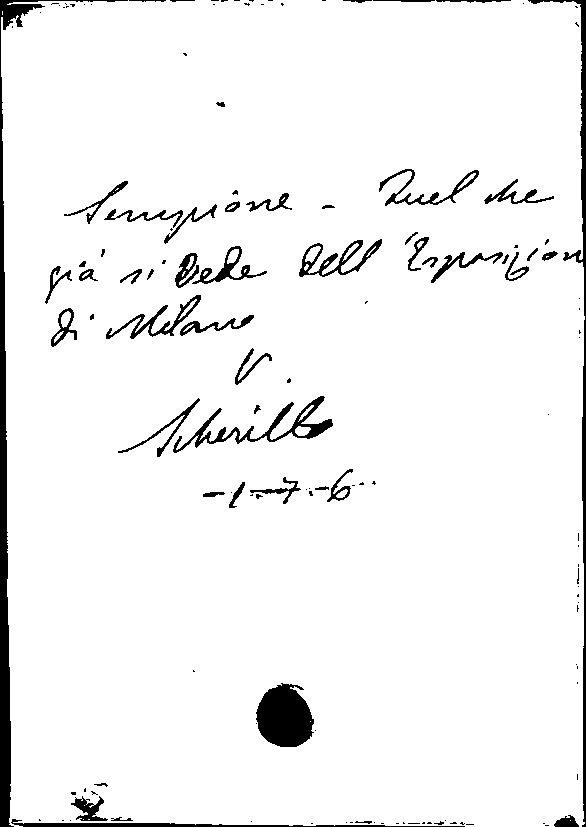 Sempione - Quel che
già si vede dell'Esposizion
di Milano
V.
Scherillo
-1-7-6